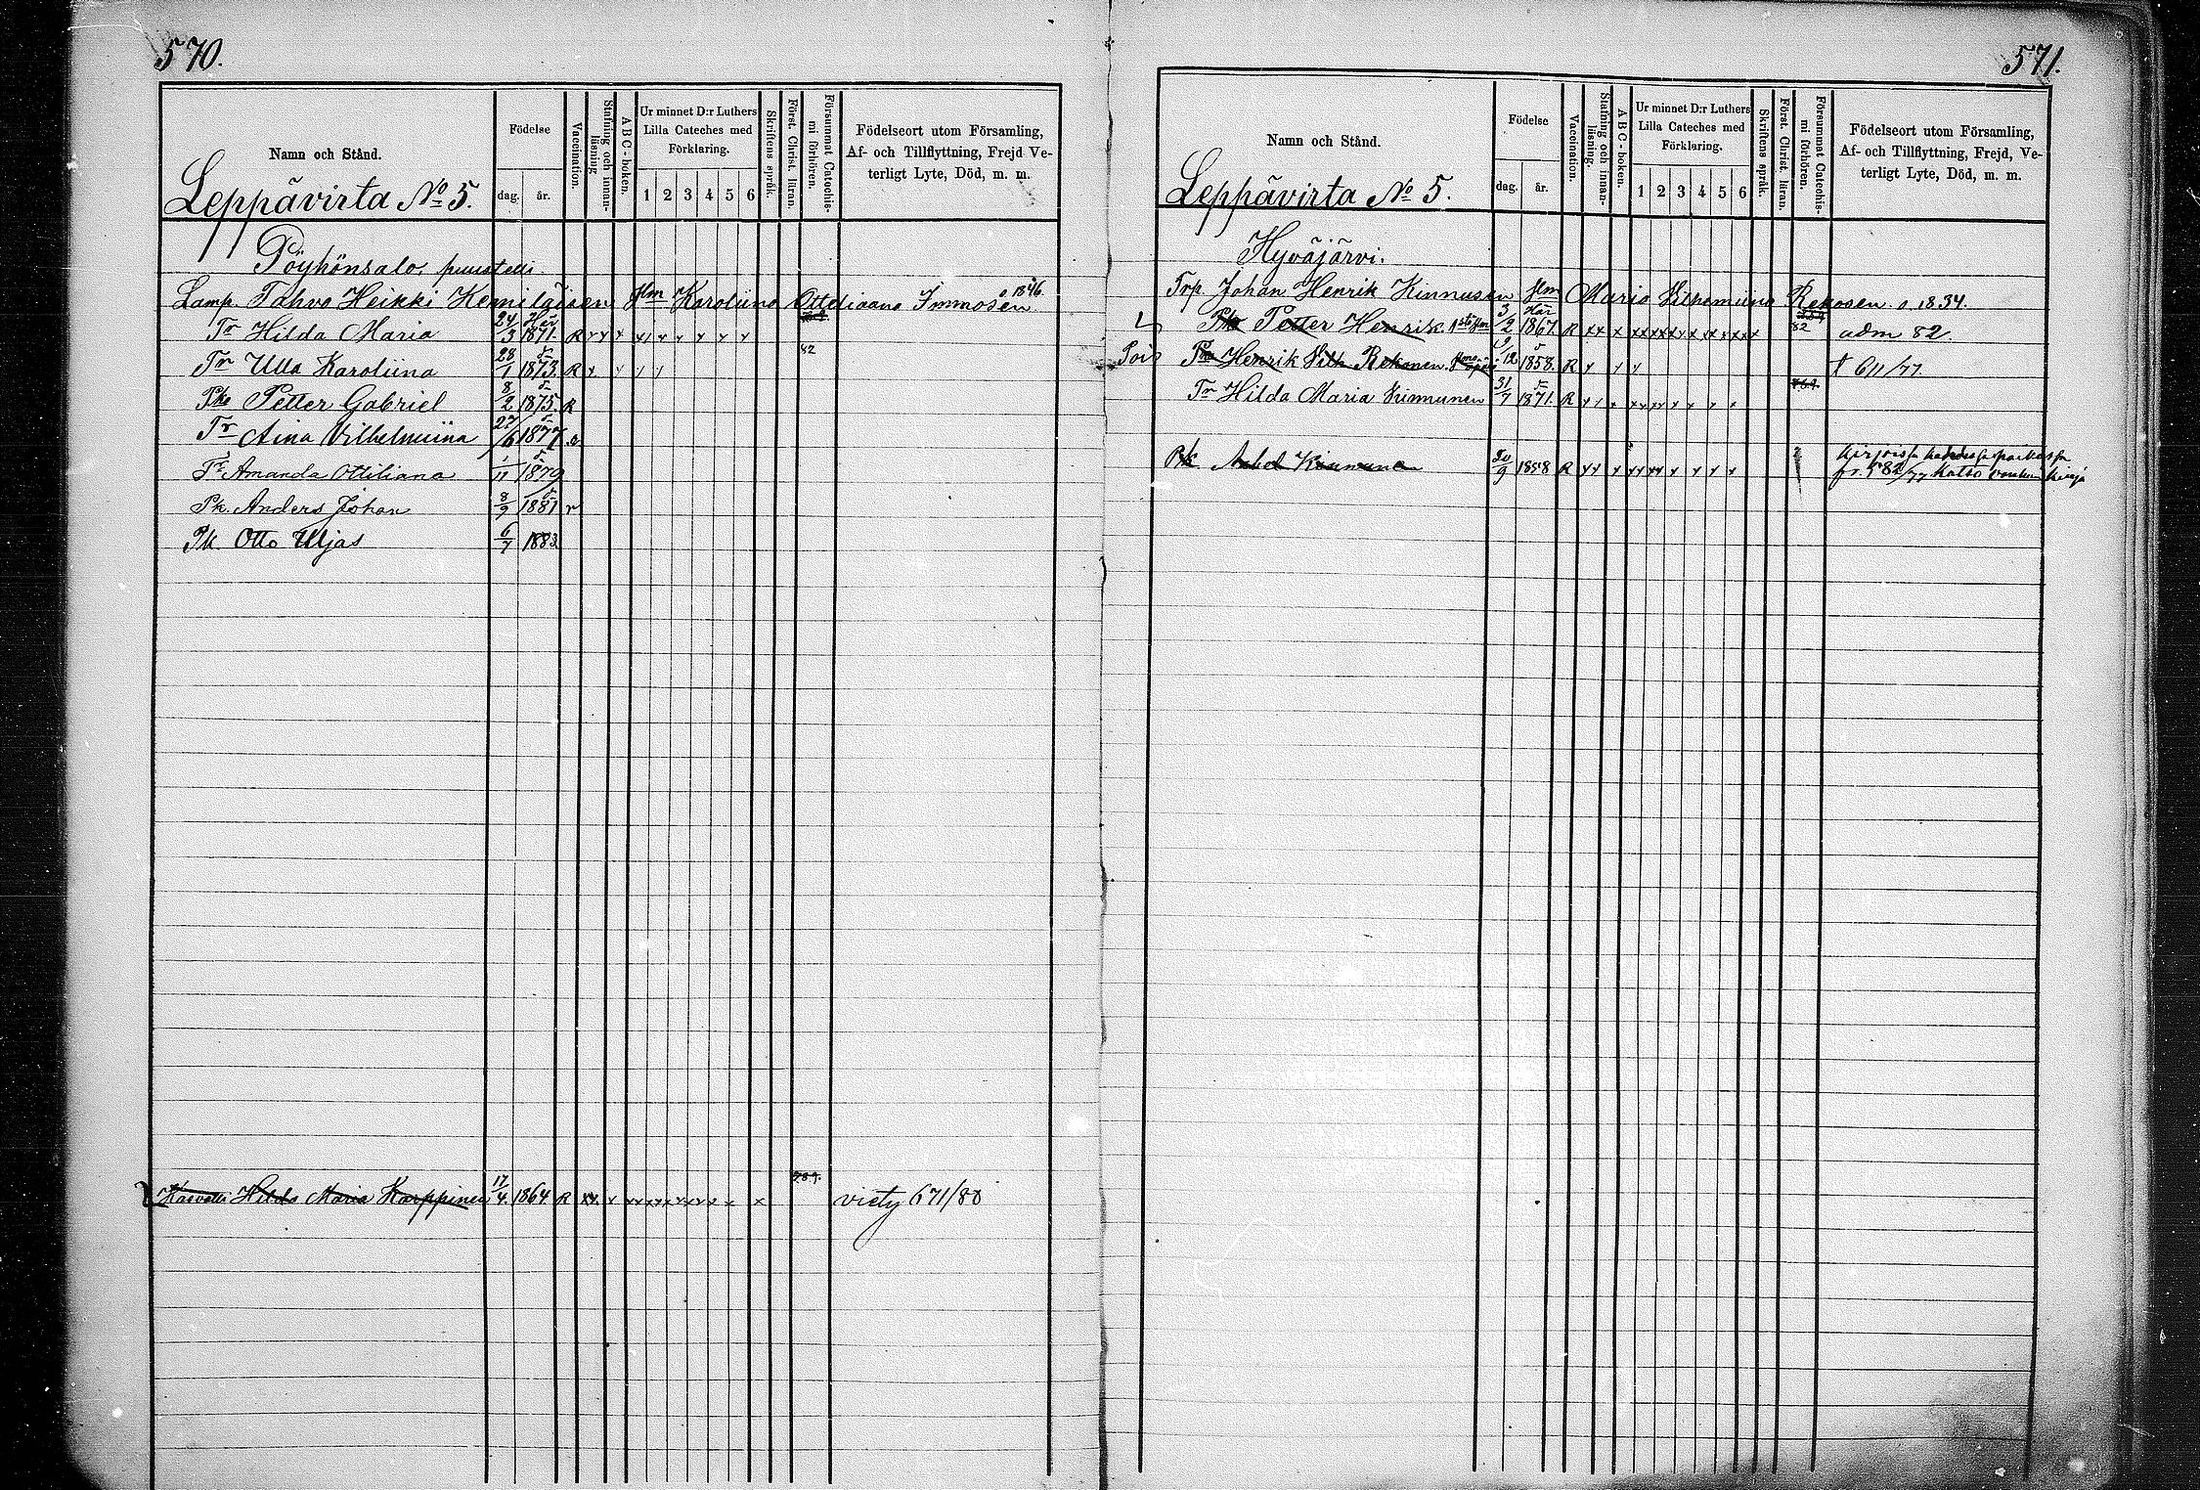 570.
Namn och Stånd.
Födelse
dag.
år.
Vaccination.
Stafning och innan-
läsning
A B C - boken.
Ur minnet D:r Luthers
Lilla Cateches med
Förklaring.
1 2 3 4 5 6
Skriftens språk.
Först. Christ. läran.
Försummat Catechis-
mi förhören.
Födelseort utom Församling,
Af- och Tillflyttning, Frejd Ve-
terligt Lyte, Död, m. m.
Leppävirta No 5.
Pöyhönsalo, puustelli.
Lamp. Tahvo Heikki Kemiläisen Hm Karoliina Ottiliaana Immosen o 1846.
Tr Hilda Maria 24/3 1871. R
Tr Ulla Karoliina 28/1 1873. R 82
Pka Petter Gabriel 8/2 1875. R
Tr Aina Vilhelmiina 27/6 1877
Tr Amanda Ottiliana 1/11 1879
Pk. Anders Johan 8/9 1881 r
Pk. Otto Uljas 6/7 1883
Hilda Maria Karppinen 17/4. 1864 R viety 671/80
571.
Namn och Stånd.
Födelse
dag.
år.
Vaccination.
Stafning och innan-
läsning.
A B C - boken.
Ur minnet D:r Luthers
Lilla Cateches med
Förklaring.
1 2 3 4 5 6
Skriftens språk.
Först. Christ. läran.
Försummat Catechis-
mi förhören.
Födelseort utom Församling,
Af- och Tillflyttning, Frejd, Ve-
terligt Lyte, Död, m. m.
Leppävirta No 5.
Hyväjärvi.
Trp. Johan Henrik Kinnusen Hm Maria Vilhemiina Rekosen o. 1834.
Pka Petter Henrik 3/2 1867. R 82 adm 82.
Pois Pka Henrik Vilh. Rekonen 9/12 1858. R † 611/77.
Tr Hilda Maria Kinnunen 31/7 1871. R
Pk Kinnunen 1858 R